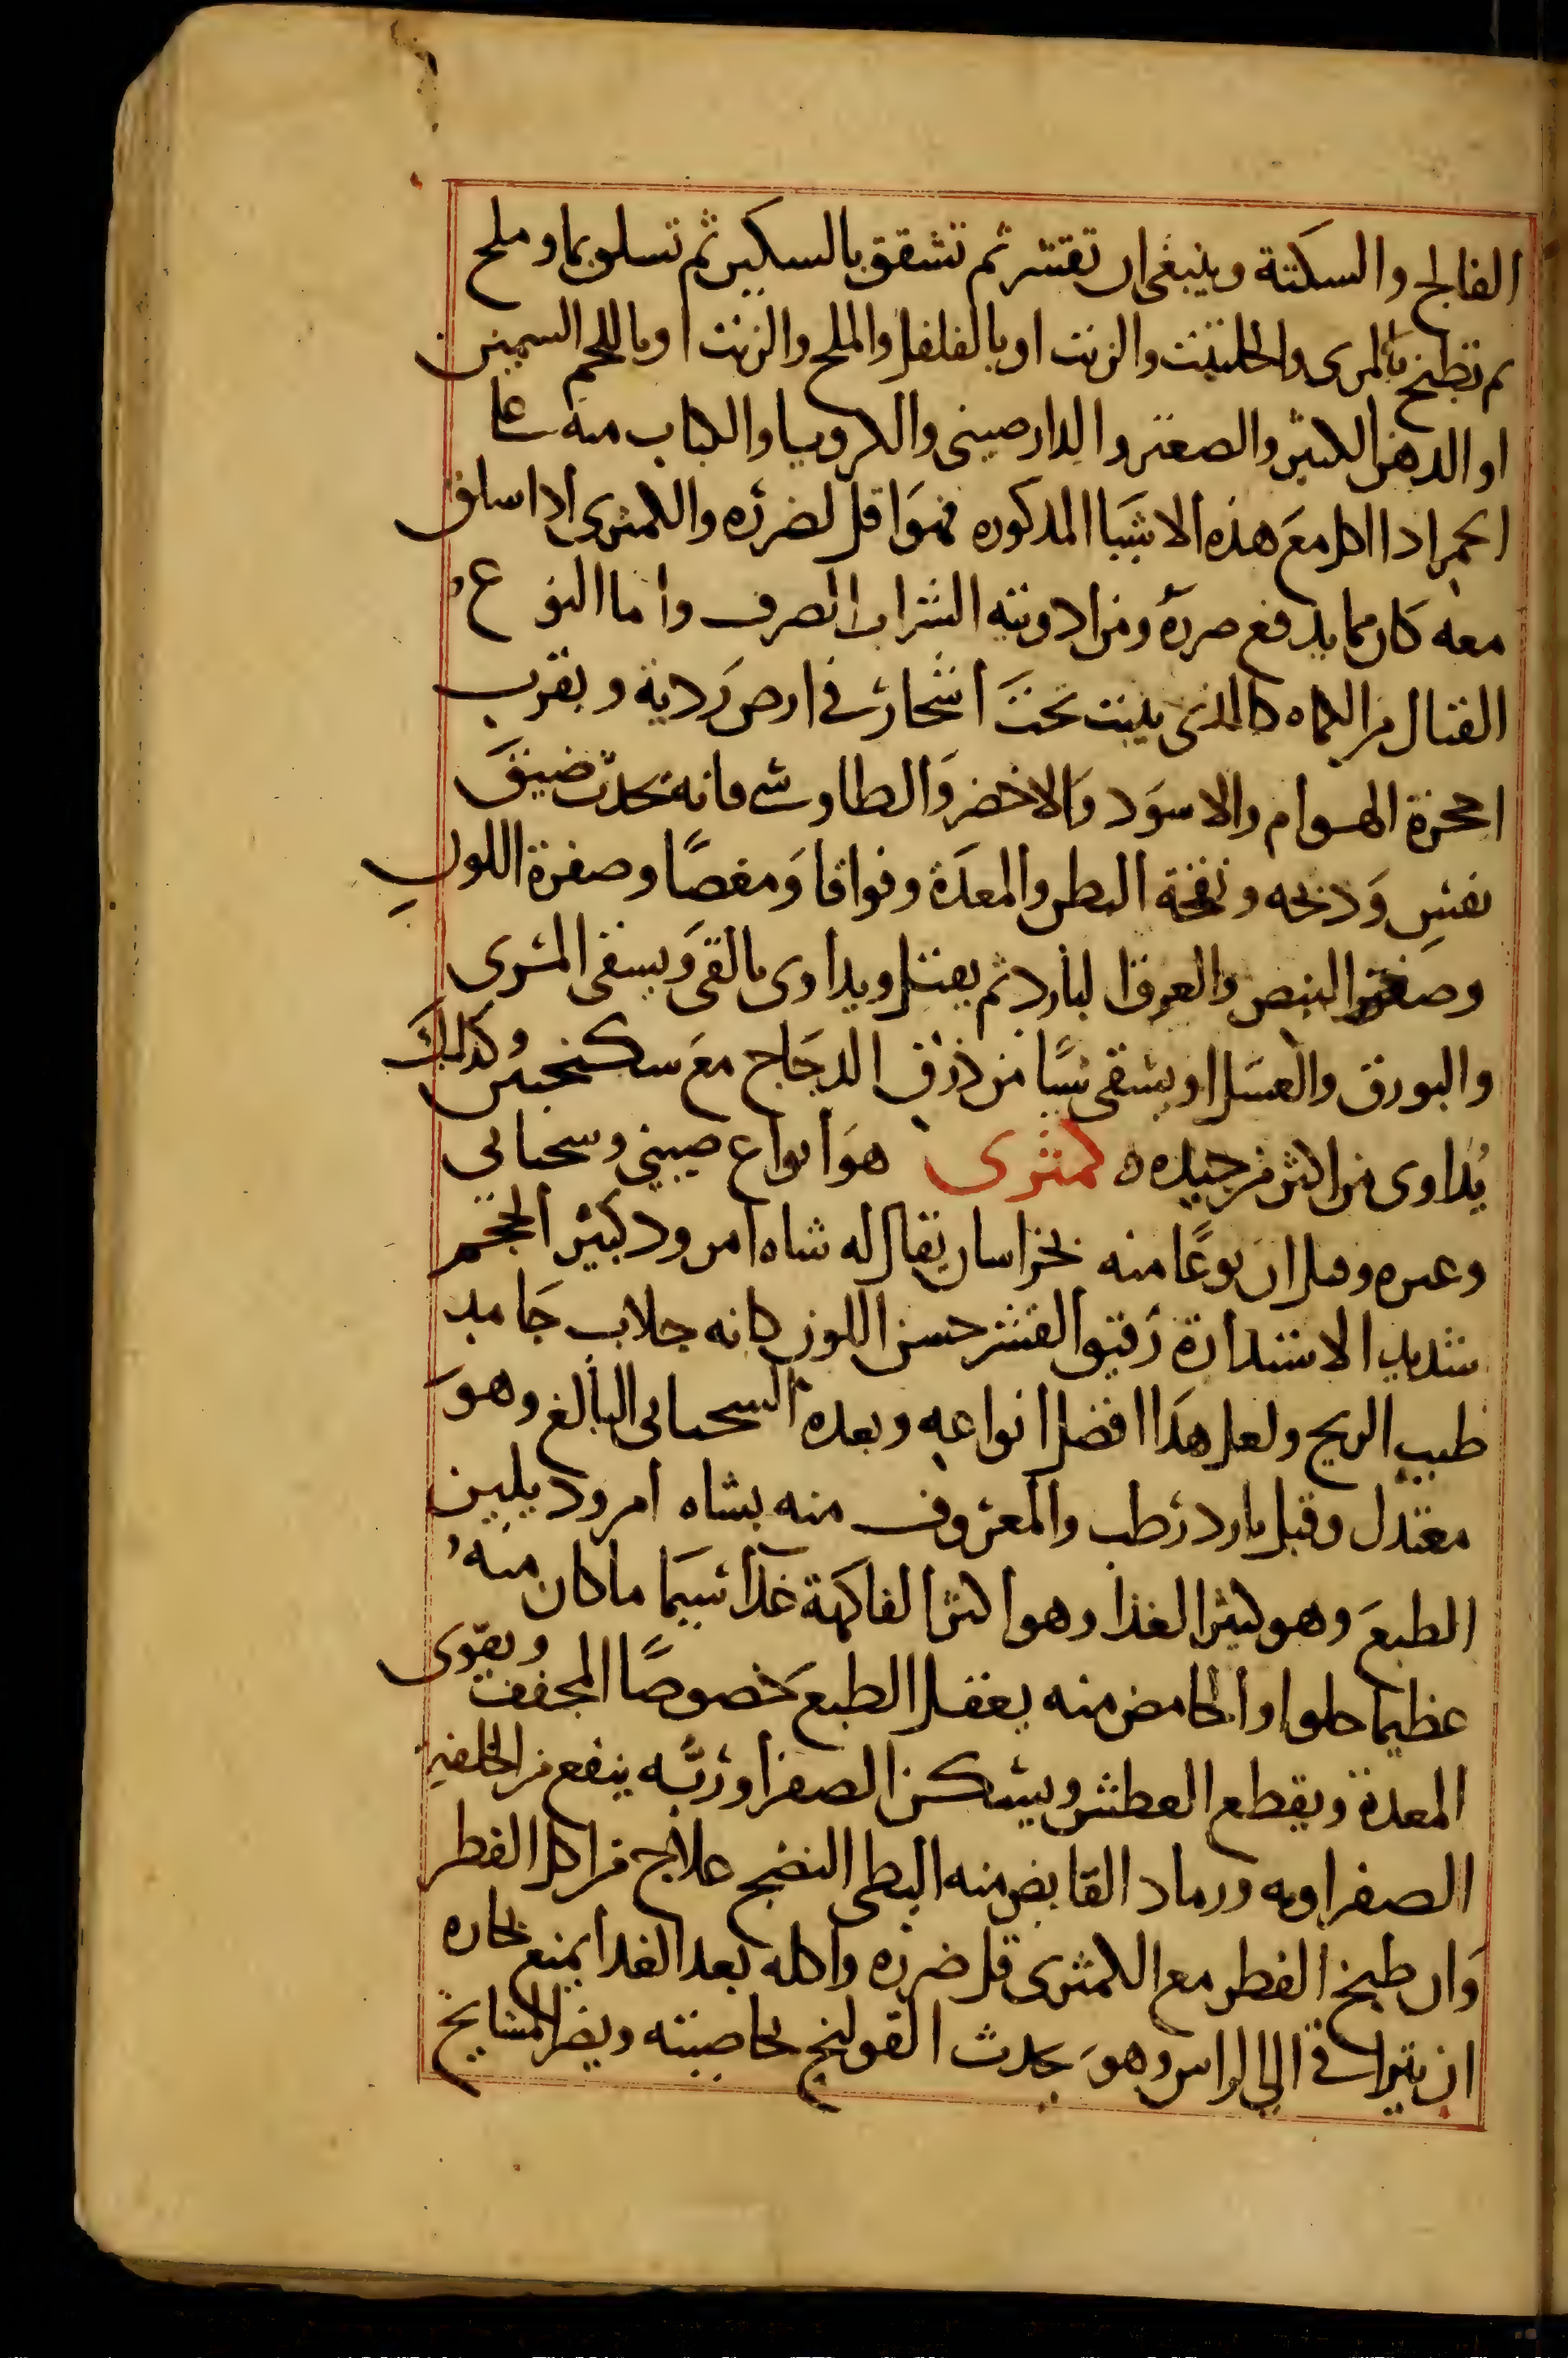 الفالج والسكتة وينبغي ان تقشر ثم تشقق بالسكين ثم تسلق بماو ملح
ثم تطبخ بالمرى والحلتيت والزيت او بالفلفل والملح والزيت او باللحم السمين
او الدهن الكثير والصعتر والدارصيني والكرويا والكباب منه على
الجمر اذا اكل مع هذه الاشيا المذكوره فهو اقل لضرره والكمثرى اذا سلق
معه كان مما يدفع ضرره ومن ادويته الشراب الصرف واما النوع
القتال من الكماه كالذي ينبت تحت اشجار في ارض ردية وبقرب
احجرة الهوام والاسود والاخضر والطاوسي فانه يحدث ضيق
نفس وذبحه ونفخة البطن والمعدة وفواقا ومغصًا وصفرة اللون
وصغر النبض والعرق البارد ثم يقتل ويداوى بالقي ويسقى المرى
والبورق والعسل او يسقى شيا من ذرق الدجاج مع سكنجبين وكذلك
يُداوى من اكثر من جيده كمثرى هو انواع صيني وسجستاني
وغيره وقيل ان نوعًا منه بخراسان يقال له شاه امرود كبير الحجم
شديد الاستدارة رقيق القشر حسن اللون كانه جلاب جامد
طيب الريح ولعل هذا افضل انواعه وبعده السجستاني البالغ وهو
معتدل وقيل بارد رطب والمعروف منه بشاه امرود يلين
الطبع وهو كثير الغذا وهو اكثر الفاكهة غذا سيما ما كان منه
عظيما حلوا والحامض منه يعقل الطبع خصوصًا المجفف ويقوى
المعدة ويقطع العطش ويسكن الصفرا وربّه ينفع من الخلفة
الصفراويه ورماد القابض منه البطى النضج علاج من اكل الفطر
وان طبخ الفطر مع الكمثرى قل ضرره واكله بعد الغدا يمنع بخاره
ان يتراقى الى الراس وهو يحدث القولنج بخاصيته ويضر المشايخ